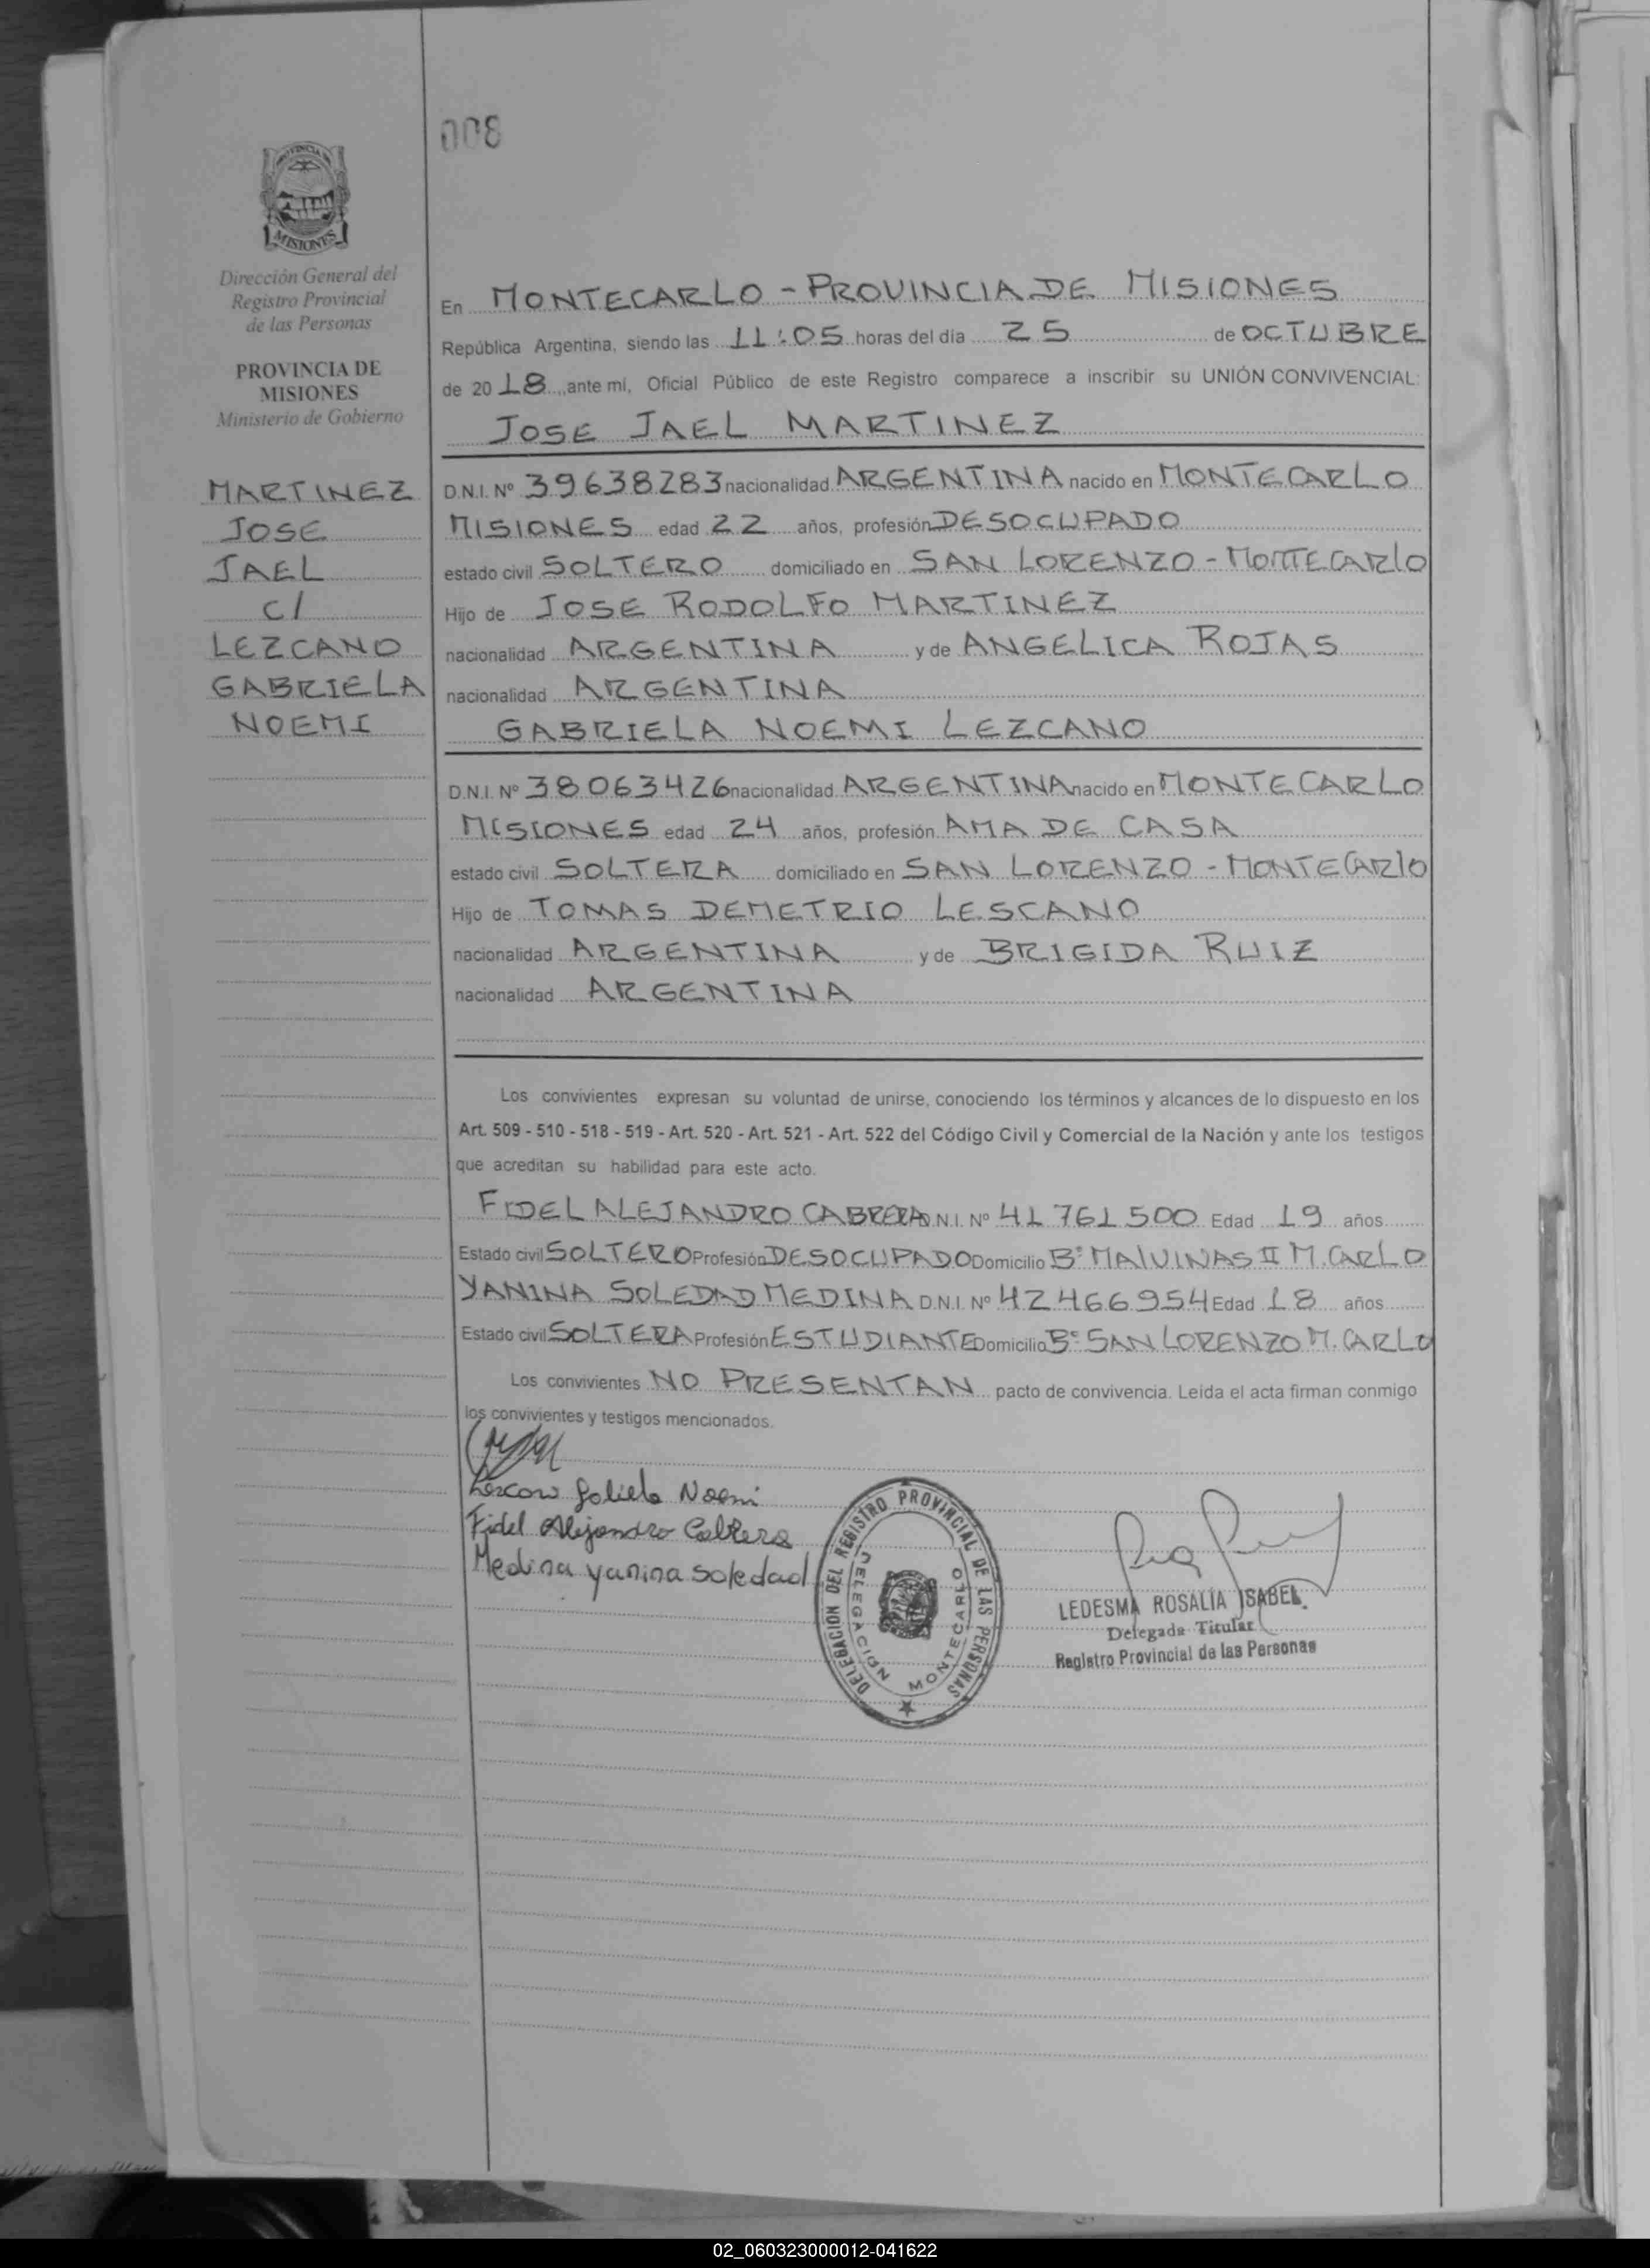 008
PROVINCIA DE
MISIONES
Dirección General del
Registro Provincial
de las Personas
PROVINCIA DE
MISIONES
Ministerio de Gobierno
MARTINEZ
JOSE
JAEL
c/
LEZCANO
GABRIELA
NOEMI
En MONTECARLO - PROVINCIA DE MISIONES
República Argentina, siendo las 11:05 horas del día 25 de OCTUBRE
de 2018, ante mí, Oficial Público de este Registro comparece a inscribir su UNIÓN CONVIVENCIAL:
JOSE JAEL MARTINEZ
D.N.I. Nº 39638283 nacionalidad ARGENTINA nacido en MONTECARLO
MISIONES edad 22 años, profesión DESOCUPADO
estado civil SOLTERO domiciliado en SAN LORENZO - MONTECARLO
Hijo de JOSE RODOLFO MARTINEZ
nacionalidad ARGENTINA y de ANGELICA ROJAS
nacionalidad ARGENTINA
GABRIELA NOEMI LEZCANO
D.N.I. Nº 38063426 nacionalidad ARGENTINA nacido en MONTECARLO
MISIONES edad 24 años, profesión AMA DE CASA
estado civil SOLTERA domiciliado en SAN LORENZO - MONTECARLO
Hijo de TOMAS DEMETRIO LESCANO
nacionalidad ARGENTINA y de BRIGIDA RUIZ
nacionalidad ARGENTINA
Los convivientes expresan su voluntad de unirse, conociendo los términos y alcances de lo dispuesto en los
Art. 509 - 510 - 518 - 519 - Art. 520 - Art. 521 - Art. 522 del Código Civil y Comercial de la Nación y ante los testigos
que acreditan su habilidad para este acto.
FIDEL ALEJANDRO CABRERA D.N.I. Nº 41761500 Edad 19 años
Estado civil SOLTERO Profesión DESOCUPADO Domicilio Bº MALVINAS II M. CARLO
YANINA SOLEDAD MEDINA D.N.I. Nº 42466954 Edad 18 años
Estado civil SOLTERA Profesión ESTUDIANTE Domicilio Bº SAN LORENZO M. CARLO
Los convivientes NO PRESENTAN pacto de convivencia. Leída el acta firman conmigo
los convivientes y testigos mencionados.
Lezcano Gabriela Noemi
Fidel Alejandro Cabrera
Medina yanina soledad
DELEGACION DEL REGISTRO PROVINCIAL DE LAS PERSONAS
DELEGACION MONTECARLO
LEDESMA ROSALIA ISABEL
Delegada Titular
Registro Provincial de las Personas
02_060323000012-041622